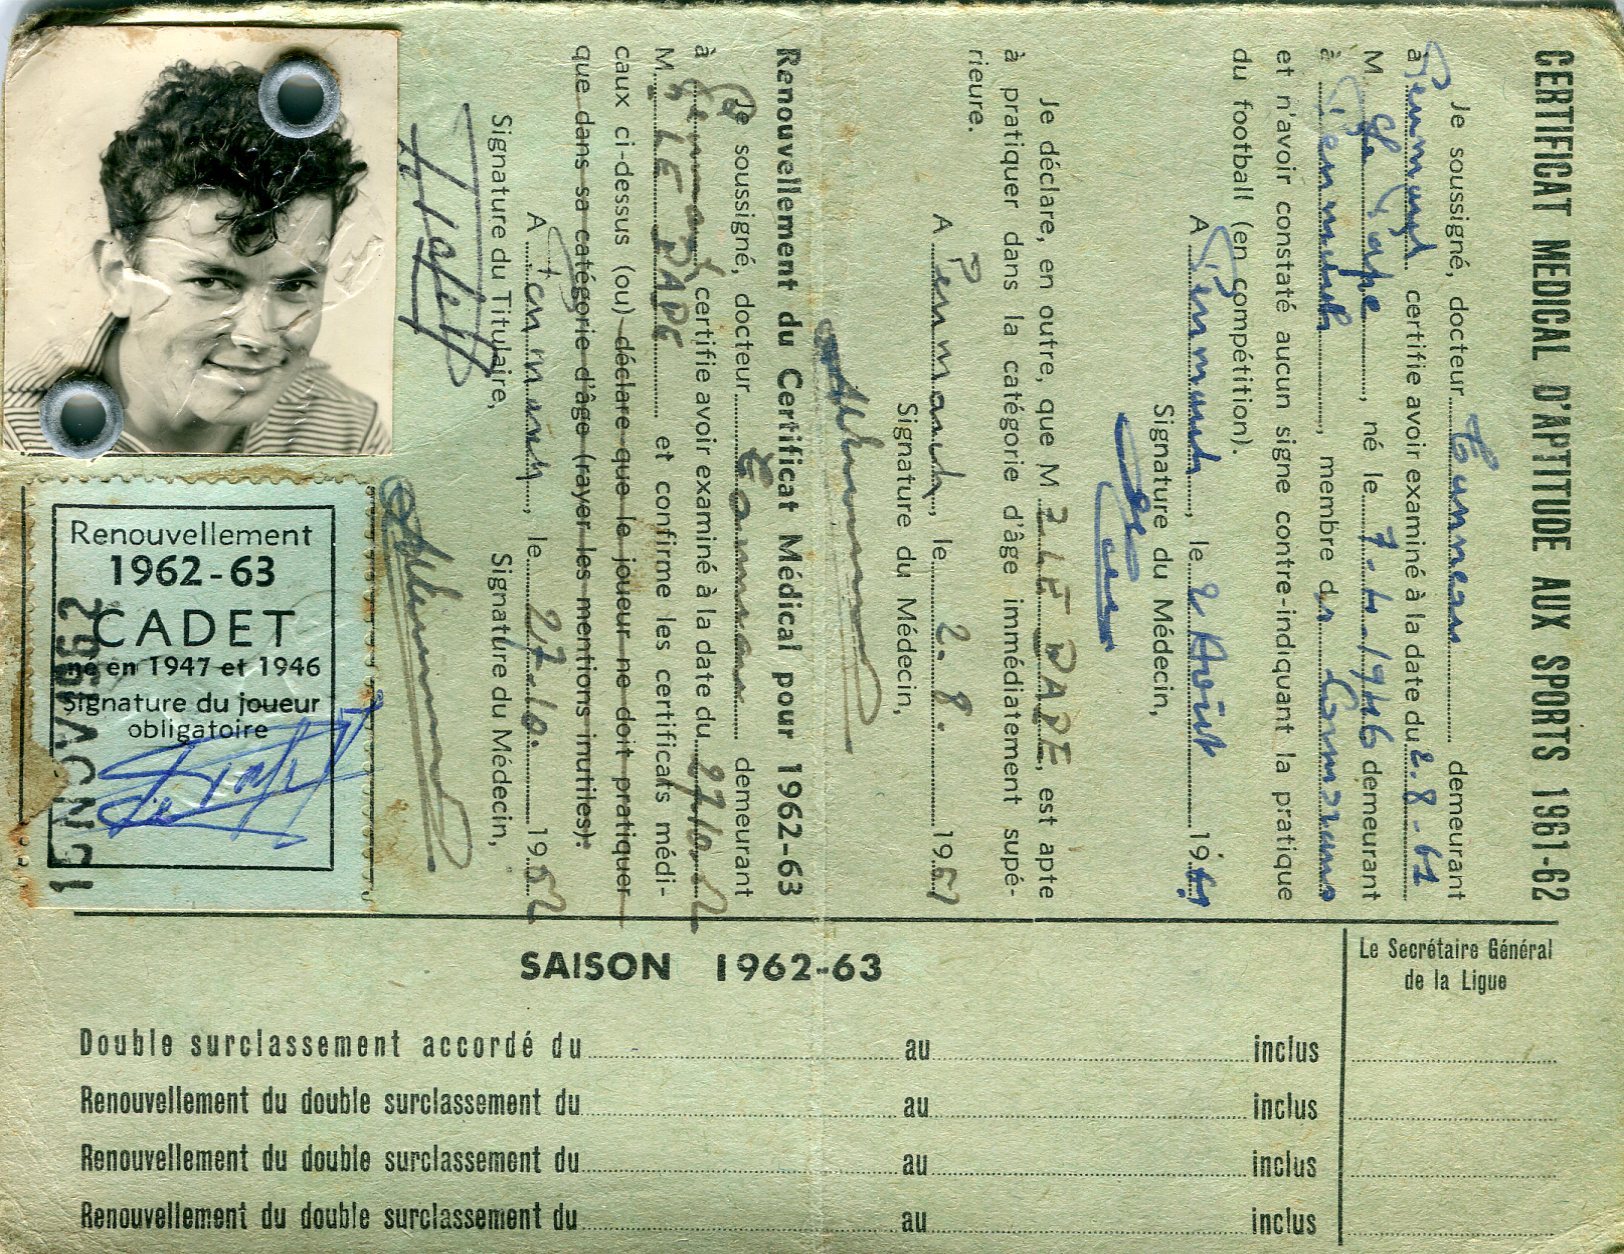 CERTIFICAT MEDICAL D'APTITUDE AUX SPORTS 1961-62
Je soussigné, docteur demeurant
à Penmarch certifie avoir examiné à la date du 2-8-61
M né le 7-4-1946 demeurant
à Penmarch, membre du
et n'avoir constaté aucun signe contre-indiquant la pratique
du football (en compétition).
A Penmarch, le 2 Août 1961
Signature du Médecin,
Je déclare, en outre, que M LE PAPE, est apte
à pratiquer dans la catégorie d'âge immédiatement supé-
rieure.
A Penmarch, le 2.8. 1961
Signature du Médecin,
Renouvellement du Certificat Médical pour 1962-63
Je soussigné, docteur demeurant
à Penmarch certifie avoir examiné à la date du 27.10.62
M. LE PAPE et confirme les certificats médi-
caux ci-dessus (ou) déclare que le joueur ne doit pratiquer
que dans sa catégorie d'âge (rayer les mentions inutiles).
A Penmarch, le 27-10. 1962
Signature du Titulaire, Signature du Médecin,
Renouvellement
1962-63
CADET
né en 1947 et 1946
Signature du joueur
obligatoire
NOV 1962
SAISON 1962-63
Le Secrétaire Général
de la Ligue
Double surclassement accordé du au inclus
Renouvellement du double surclassement du au inclus
Renouvellement du double surclassement du au inclus
Renouvellement du double surclassement du au inclus